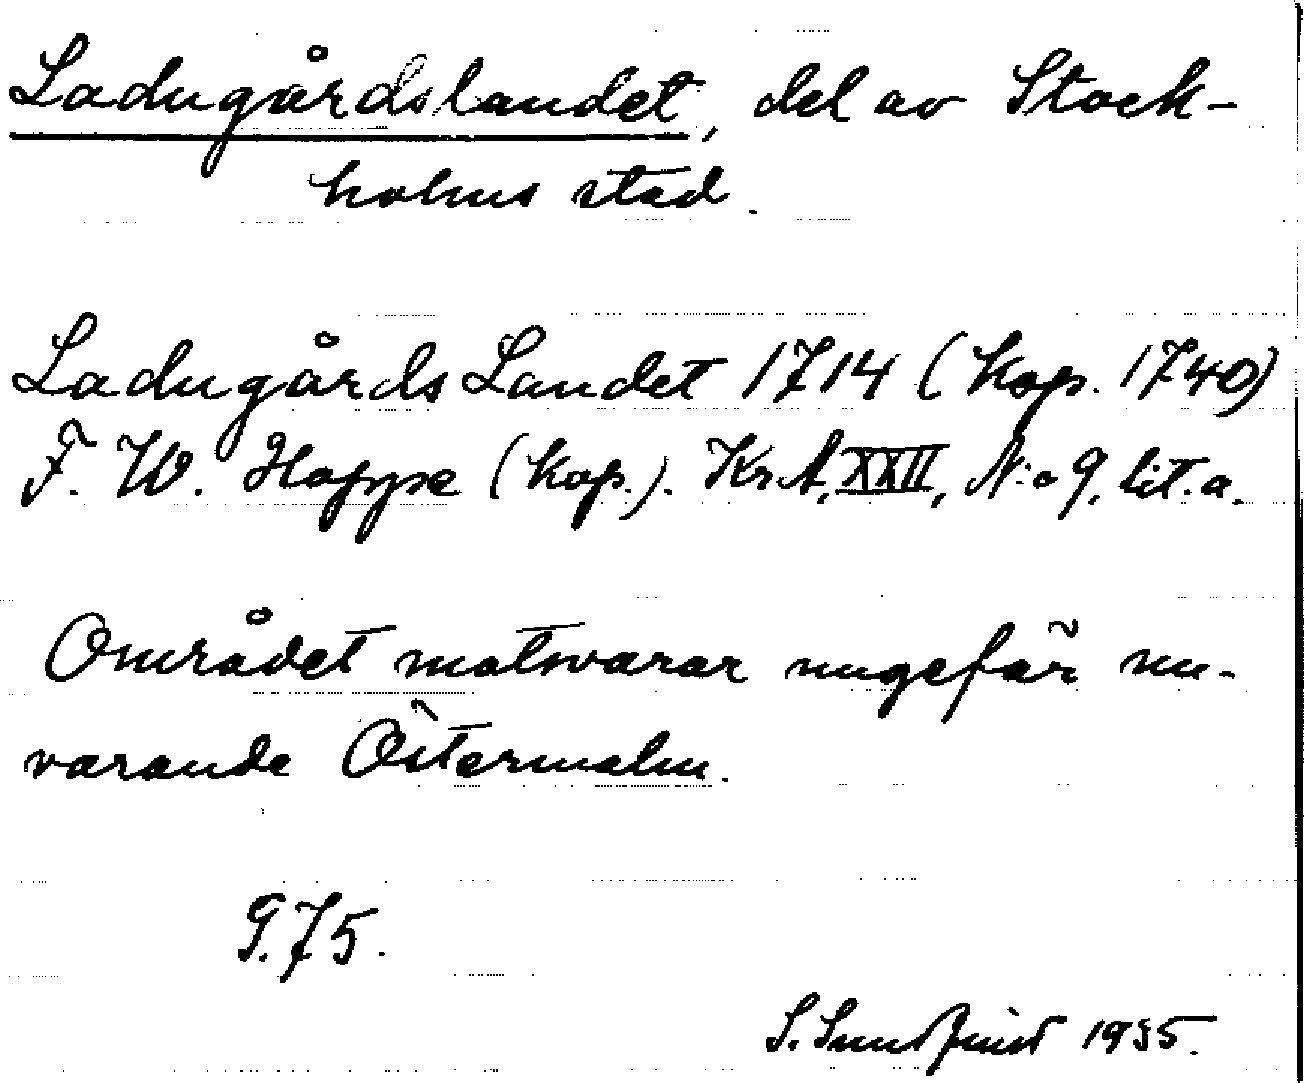 Ladugårdslandet, del av Stock-
holms stad.
Ladugårds Landet 1714 (Kop. 1740)
F. W. Hoppe (kop.). KrA, XXII, N:o 9, lit. a.
Området motsvarar ungefär nu-
varande Östermalm.
9.75.
S. Sundquist 1935.